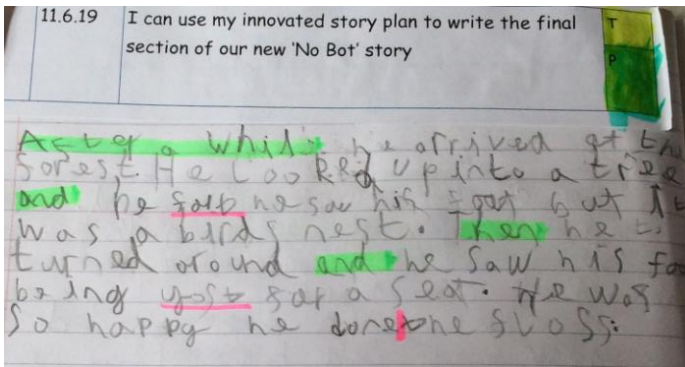 11.6.19 I can use my innovated story plan to write the final
section of our new 'No Bot' story
T
P
After a while he arrived at the
forest. He looked up into a tree
and he fort he saw his foot but it
was a birds nest. Then he
turned around and he saw his foo
being yost for a seat. He was
so happy he done the floss.